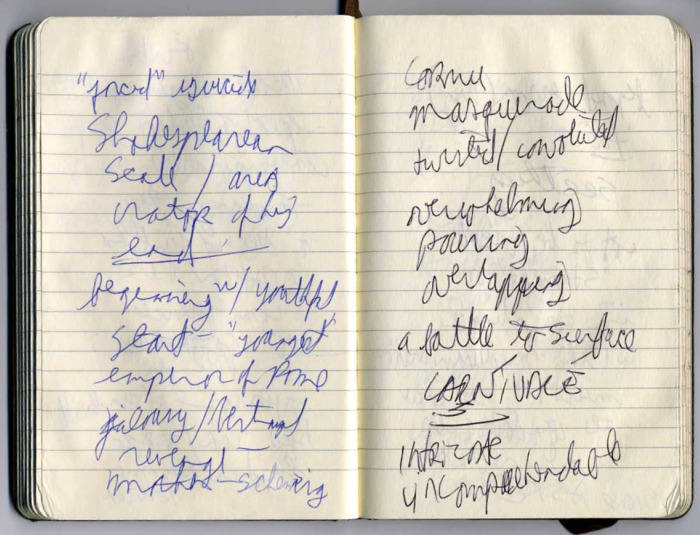 "forced" suicide
Shakespearean
Scale / area
creator of his
end
beginning w/ youthful
start - "youngest"
emperor of Rome
jealousy / betrayal
revenge -
mother - scheming
masquerade
twisted / convoluted
overwhelming
pouring
overlapping
a battle to surface
CARNIVALE
intricate
uncomprehendable